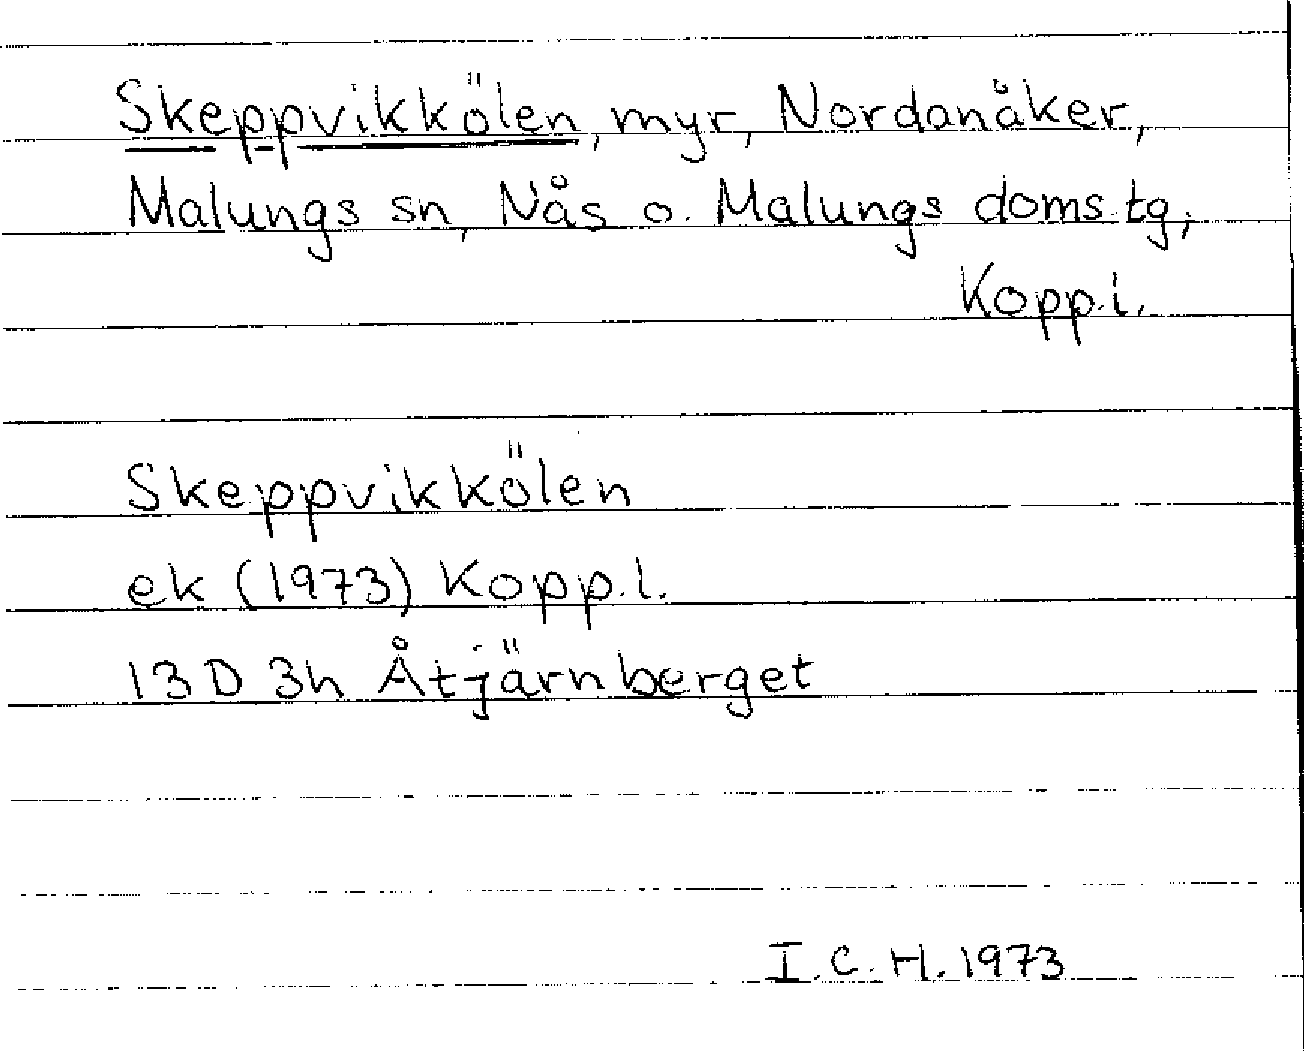 Skeppvikkölen, myr, Nordanåker,
Malungs sn, Nås o. Malungs doms.tg,
Kopp.l.
Skeppvikkölen
ek (1973) Kopp.l.
13D 3h Åtjärnberget
I.C.H. 1973